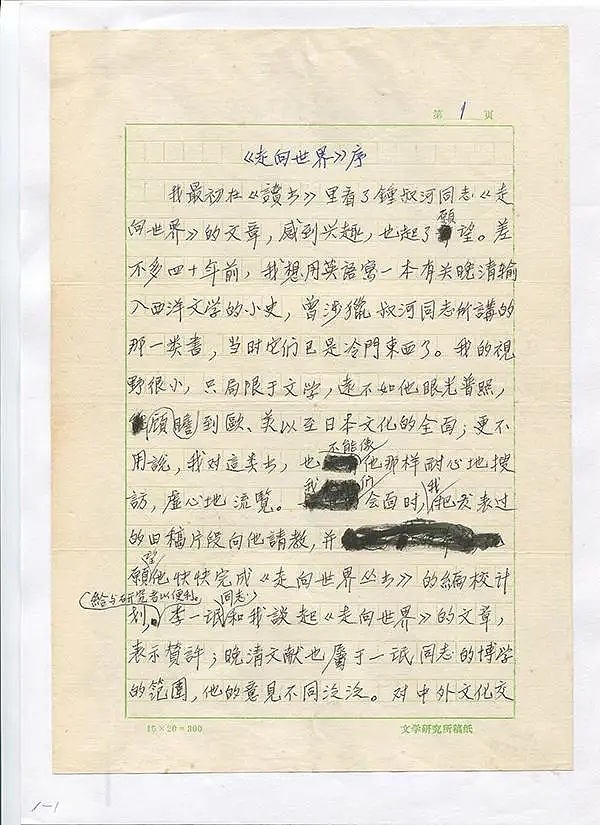 第 1 页
《走向世界》序
我最初在《讀书》里看了鍾叔河同志《走
願
向世界》的文章,感到兴趣,也起了望。差
不多四十年前,我想用英語寫一本有关晚清输
入西洋文学的小史,曾涉獵叔河同志所講的
那一类書,当时它们已是冷門東西了。我的視
野很小,只局限于文学,遠不如他眼光普照,
顧瞻到歐、美以至日本文化的全面;更不
不能像
用說,我对這类书,也他那样耐心地搜
我们 我
訪,虚心地流覽。会面时,把发表过
的旧稿片段向他請教,并
願他快快完成《走向世界丛书》的編校计
(給与研究者以便利。 同志
划,李一氓和我談起《走向世界》的文章,
表示贊許;晚清文献也屬于一氓同志的博学
的范圍,他的意見不同泛泛。对中外文化交
15×20=300 文学研究所稿纸
1-1